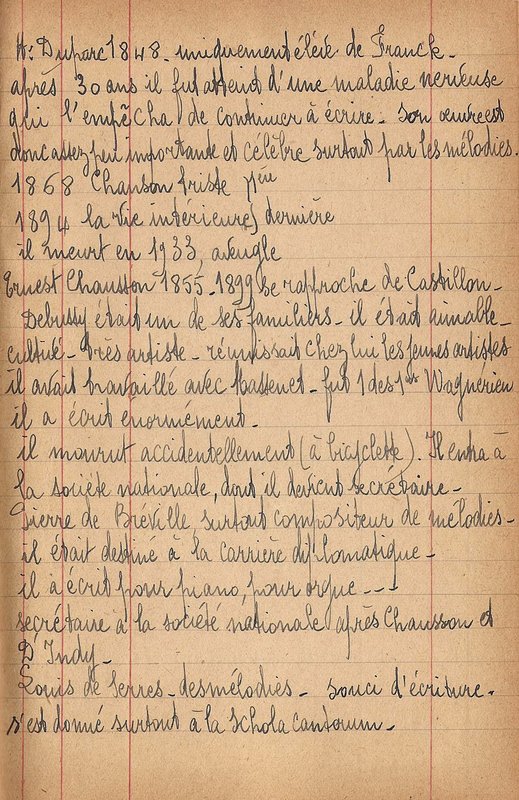 H: Duparc 1848 - uniquement élève de Franck -
après 30 ans il fut atteint d'une maladie nerveuse
qui l'empêcha de continuer à écrire - son œuvre est
donc assez peu importante et célèbre surtout par les mélodies.
1868 Chanson triste 1ère
1894 la vie intérieure, dernière
il meurt en 1933, aveugle
Ernest Chausson 1855-1899 se rapproche de Castillon -
Debussy était un de ses familiers - il était aimable -
cultivé - très artiste - réunissait chez lui les jeunes artistes
il avait travaillé avec Massenet - fut 1 des 1ers Wagnérien
il a écrit enormément -
il mourut accidentellement (à bicyclette). Il entra à
la société nationale, dont il devient secrétaire -
Pierre de Bréville surtout compositeur de mélodies -
il était destiné à la carrière diplomatique -
il à écrit pour piano, pour orgue ---
secrétaire à la société nationale après Chausson et
D'Indy -
Louis de Serres - des mélodies - souci d'écriture -
s'est donné surtout à la Schola cantorum -